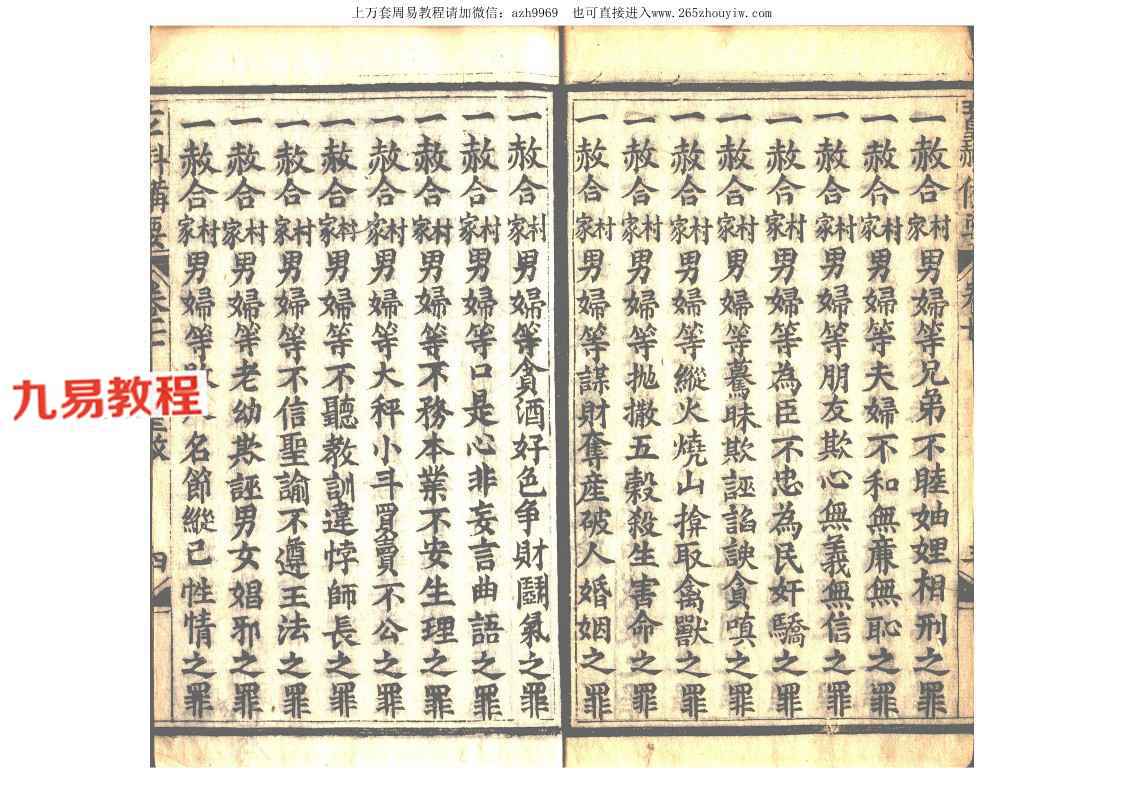 上万套周易教程请加微信：azh9969 也可直接进入www.265zhouyiw.com
一赦合家村男婦等兄弟不睦妯娌相刑之罪
一赦合家村男婦等夫婦不和無廉無恥之罪
一赦合家村男婦等朋友欺心無義無信之罪
一赦合家村男婦等為臣不忠為民奸驕之罪
一赦合家村男婦等驀昧欺誣諂諛貪嗔之罪
一赦合家村男婦等縱火燒山揜取禽獸之罪
一赦合家村男婦等拋撒五穀殺生害命之罪
一赦合家村男婦等謀財奪産破人婚姻之罪
一赦合家村男婦等貪酒好色争財鬪氣之罪
一赦合家村男婦等口是心非妄言曲語之罪
一赦合家村男婦等不務本業不安生理之罪
一赦合家村男婦等大秤小斗買賣不公之罪
一赦合家村男婦等不聽教訓違悖師長之罪
一赦合家村男婦等不信聖諭不遵王法之罪
一赦合家村男婦等老幼欺誣男女娼邪之罪
一赦合家村男婦等名節縱己性情之罪
四
九易教程